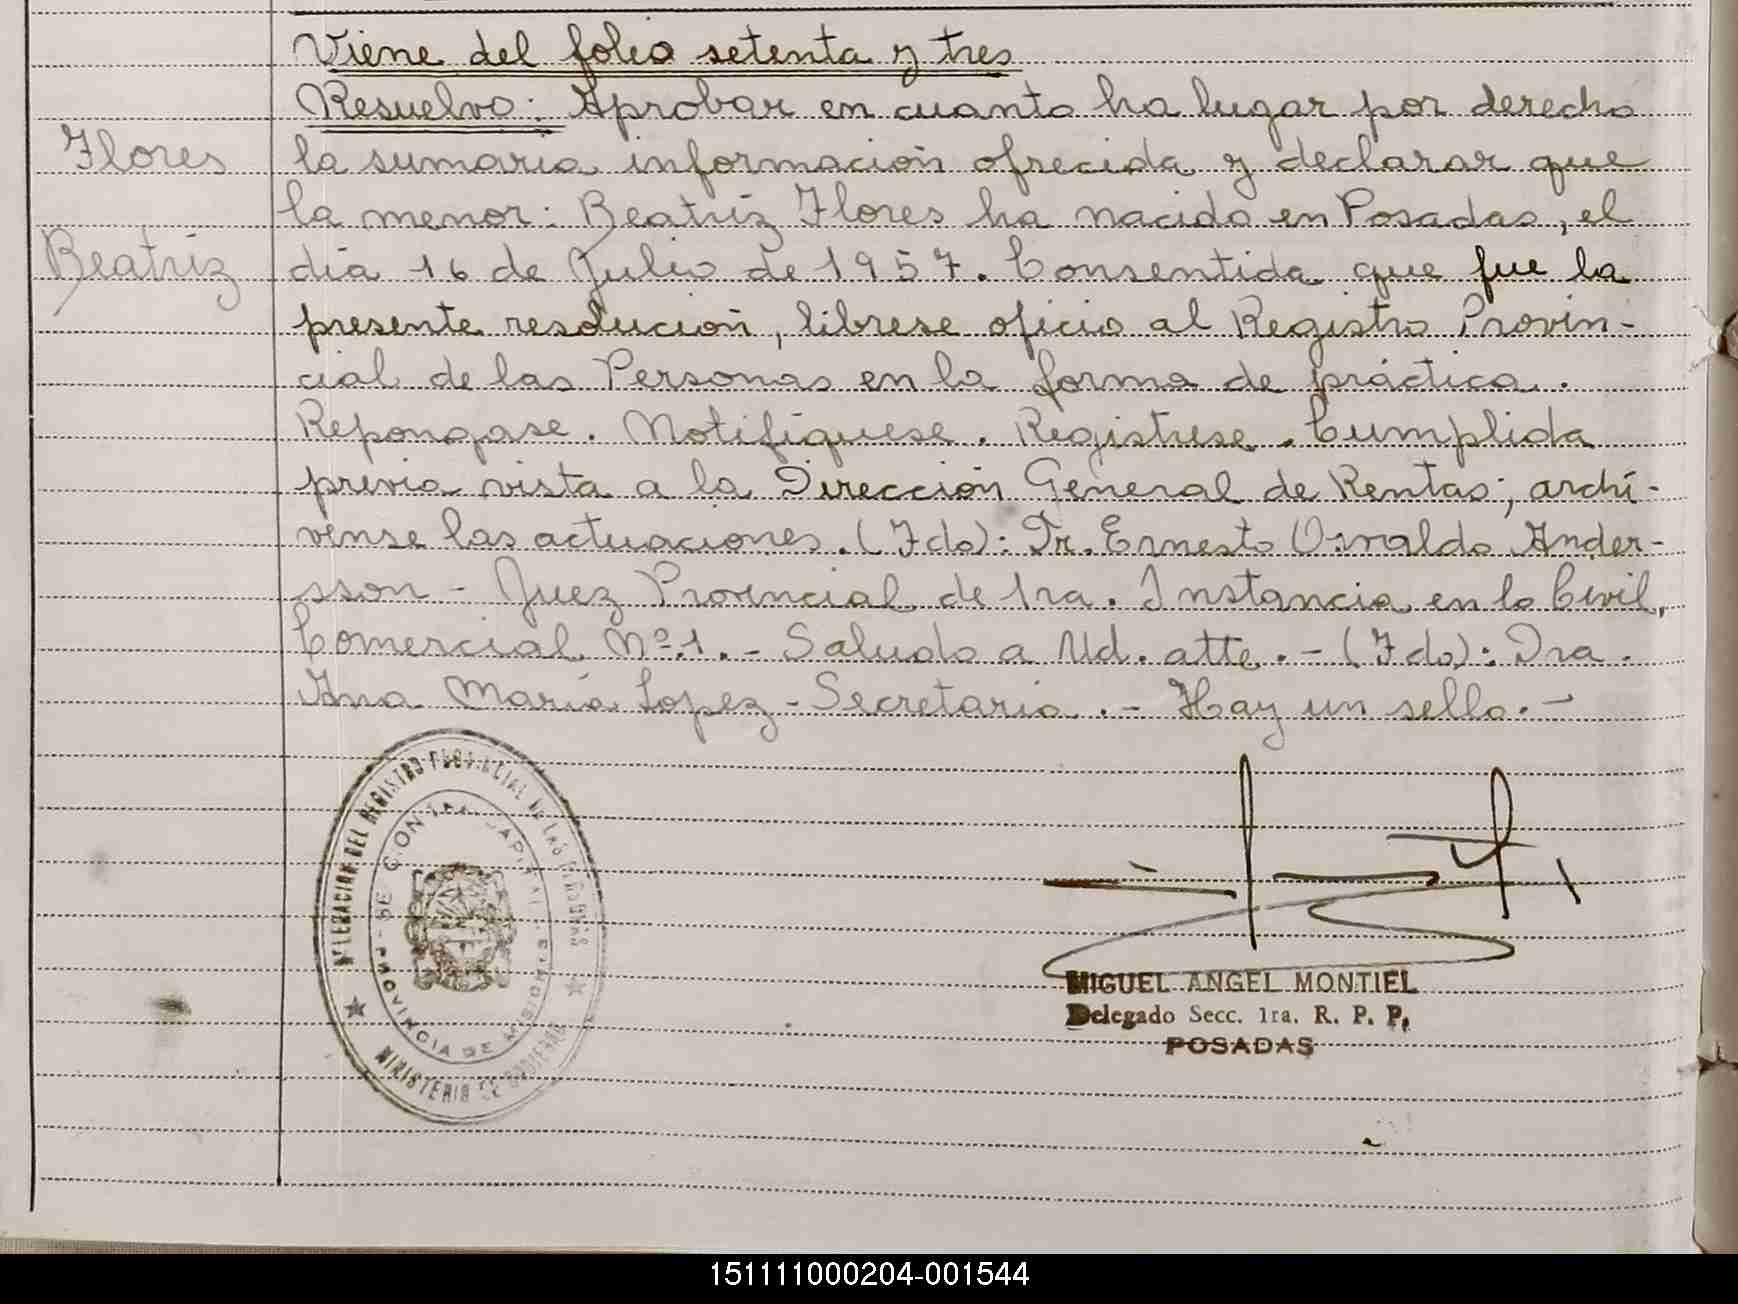 Viene del folio setenta y tres
Resuelvo: Aprobar en cuanto ha lugar por derecho
Flores
la sumaria información ofrecida y declarar que
la menor: Beatriz Flores ha nacido en Posadas, el
Beatriz
día 16 de Julio de 1957. Consentida que fue la
presente resolución, líbrese oficio al Registro Provin-
cial de las Personas en la forma de práctica.
Repongase. Notifíquese. Registrese. Cumplida
previa vista a la Dirección General de Rentas; archí-
vense las actuaciones. (Fdo): Dr. Ernesto Osvaldo Ander-
sson - Juez Provincial de 1ra. Instancia en lo Civil,
Comercial Nº 1. - Saludo a Ud. atte. - (Fdo): Dra.
Ana María Lopez - Secretaria. - Hay un sello. -
DELEGACION DEL REGISTRO PROVINCIAL DE LAS PERSONAS
SECCION 1RA. CAPITAL
PROVINCIA DE MISIONES
MINISTERIO DE GOBIERNO
MIGUEL ANGEL MONTIEL
Delegado Secc. 1ra. R. P. P.
POSADAS
151111000204-001544